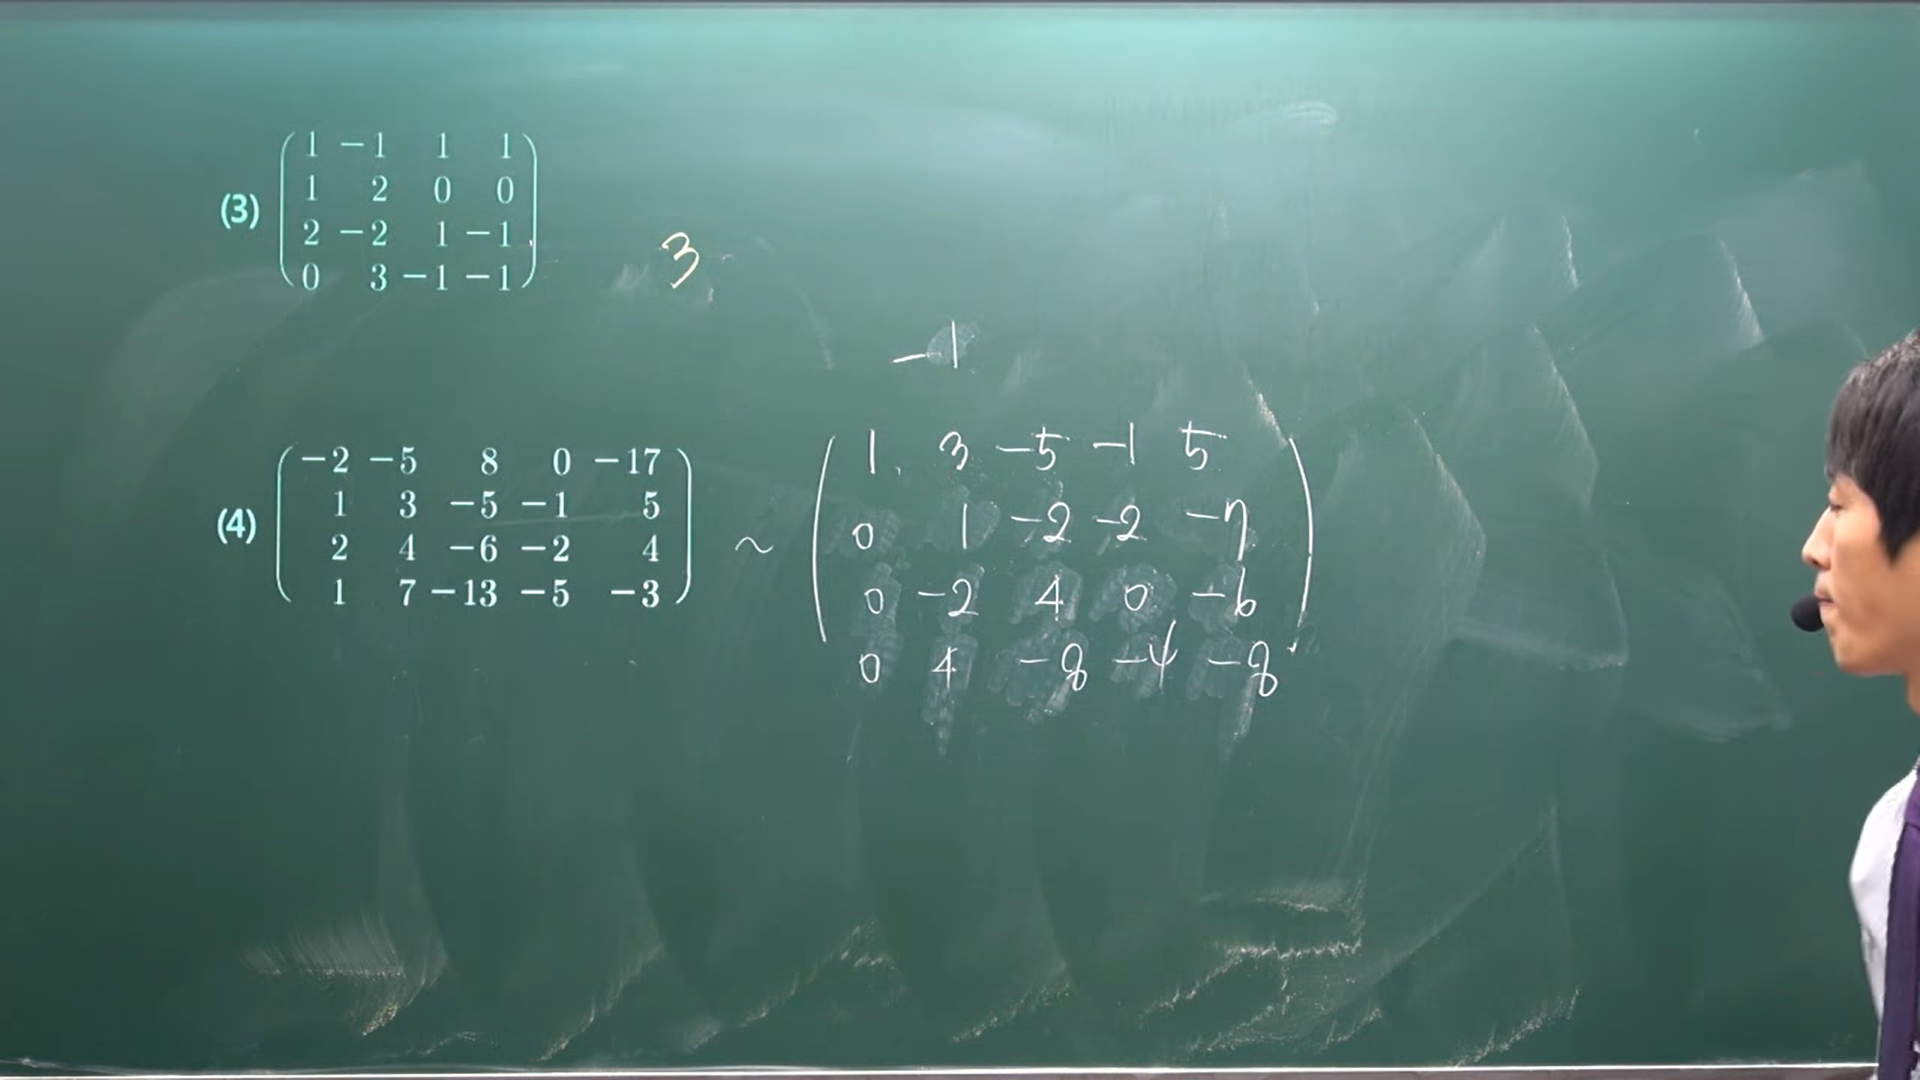 (3)
1 −1 1 1
1 2 0 0
2 −2 1 −1
0 3 −1 −1
3
−1
(4)
−2 −5 8 0 −17
1 3 −5 −1 5
2 4 −6 −2 4
1 7 −13 −5 −3
~
1 3 −5 −1 5
0 1 −2 −2 −7
0 −2 4 0 −6
0 4 −8 −4 −8